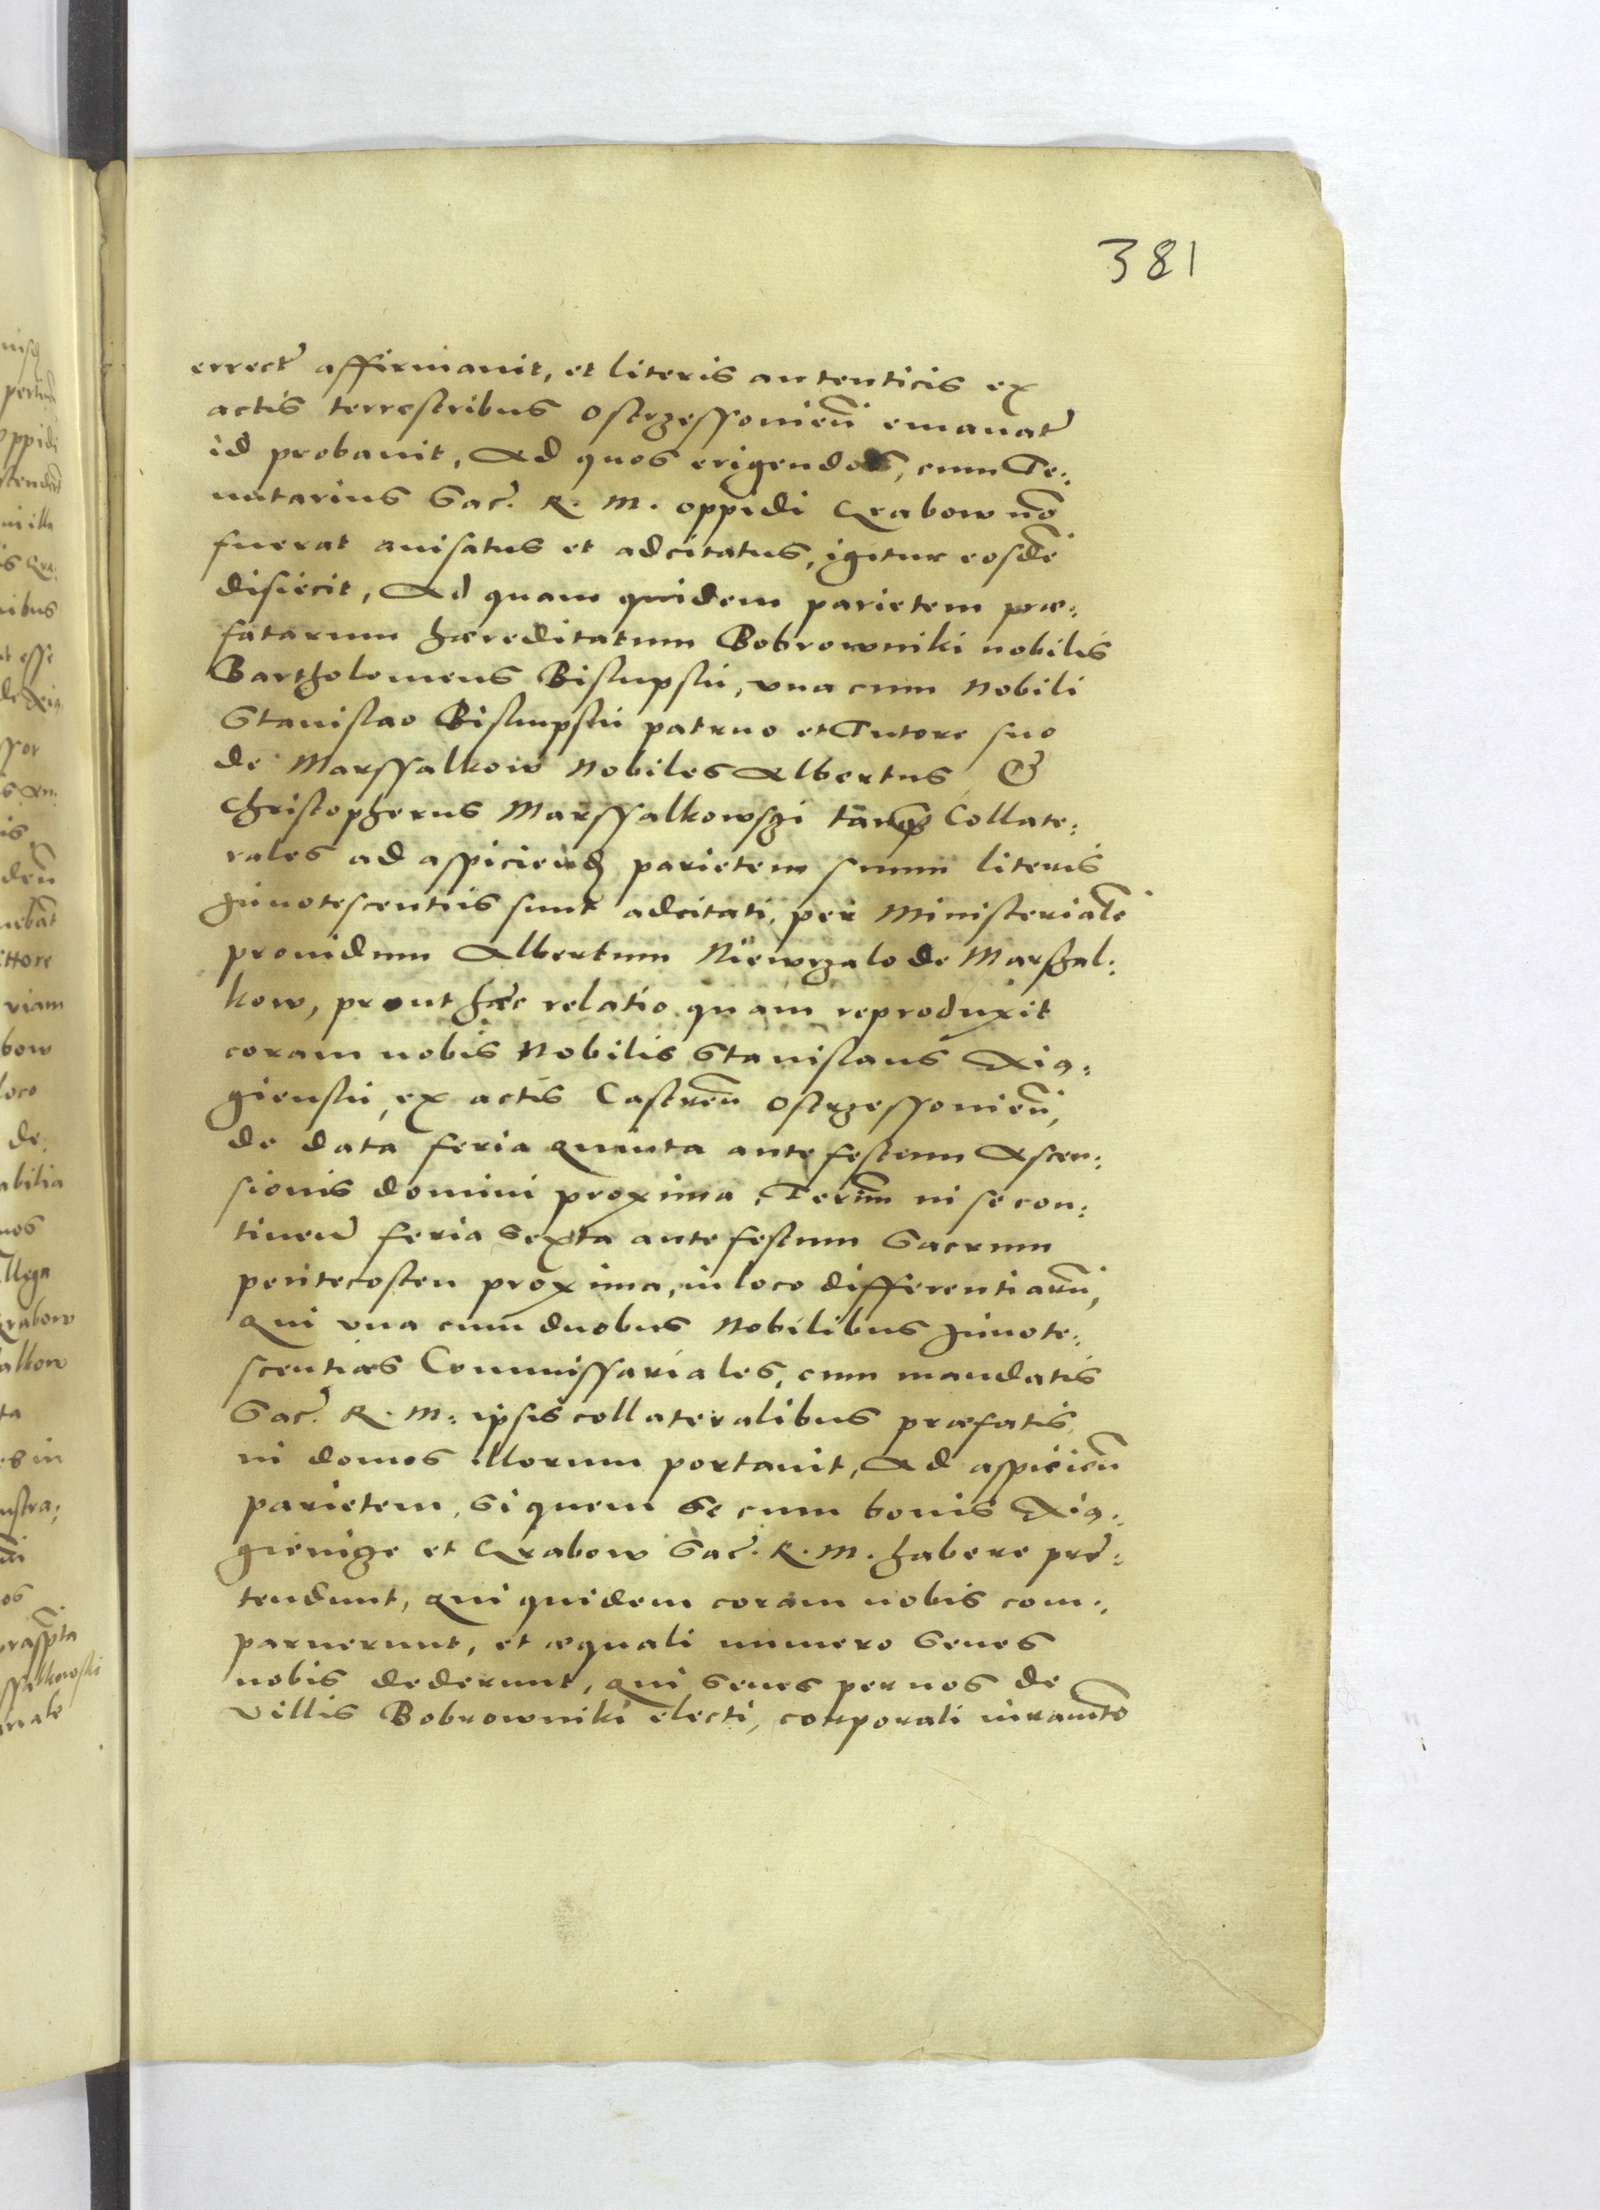 381
errect affirmavit, et literis autenticis ex
actis terrestribus Ostrzessonien̄ emanat̄
id probavit, Ad quos erigendos, cum Te:
nutarius Sac. R. M. oppidi Grabow nō
fuerat avisatus et adcitatus, igitur eosdē
disiecit, Ad quam quidem parietem præ:
fatarum hæreditatum Bobrowniki nobilis
Bartholomeus Biskupski, una cum Nobili
Stanislao Biskupski patruo et Tutore suo
de Marssalkow Nobiles Albertus &
Christopherus Marssalkowszi tanq̄ Collate:
rales ad aspiciend parietem suum literis
Innotescentiis sunt adcitati, per Ministerialē
providum Albertum Niewrzalo de Marszal:
kow, prout hæc relatio quam reproduxit
coram nobis Nobilis Stanislaus Xią:
gienski, ex actis Castren̄ Ostrzessonien̄,
de data feria Quinta ante festum Ascen:
sionis domini proxima, Term̄ in se con:
tinen̄ feria Sexta ante festum Sacrum
pentecosten proxima, in loco differentiarū,
Qui una cum duobus Nobilibus Innote:
scentias Commissariales, cum mandatis
Sac. R. M: ipsis collateralibus præfatis
in domos illorum portavit, Ad aspicien̄
parietem, Si quem se cum bonis Xią:
gienize et Grabow Sac. R. M. habere præ:
tendunt, Qui quidem coram nobis com:
paruerunt, et æquali numero Senes
nobis dederunt, Qui Senes per nos de
Villis Bobrowniki electi, corporali iuramēto